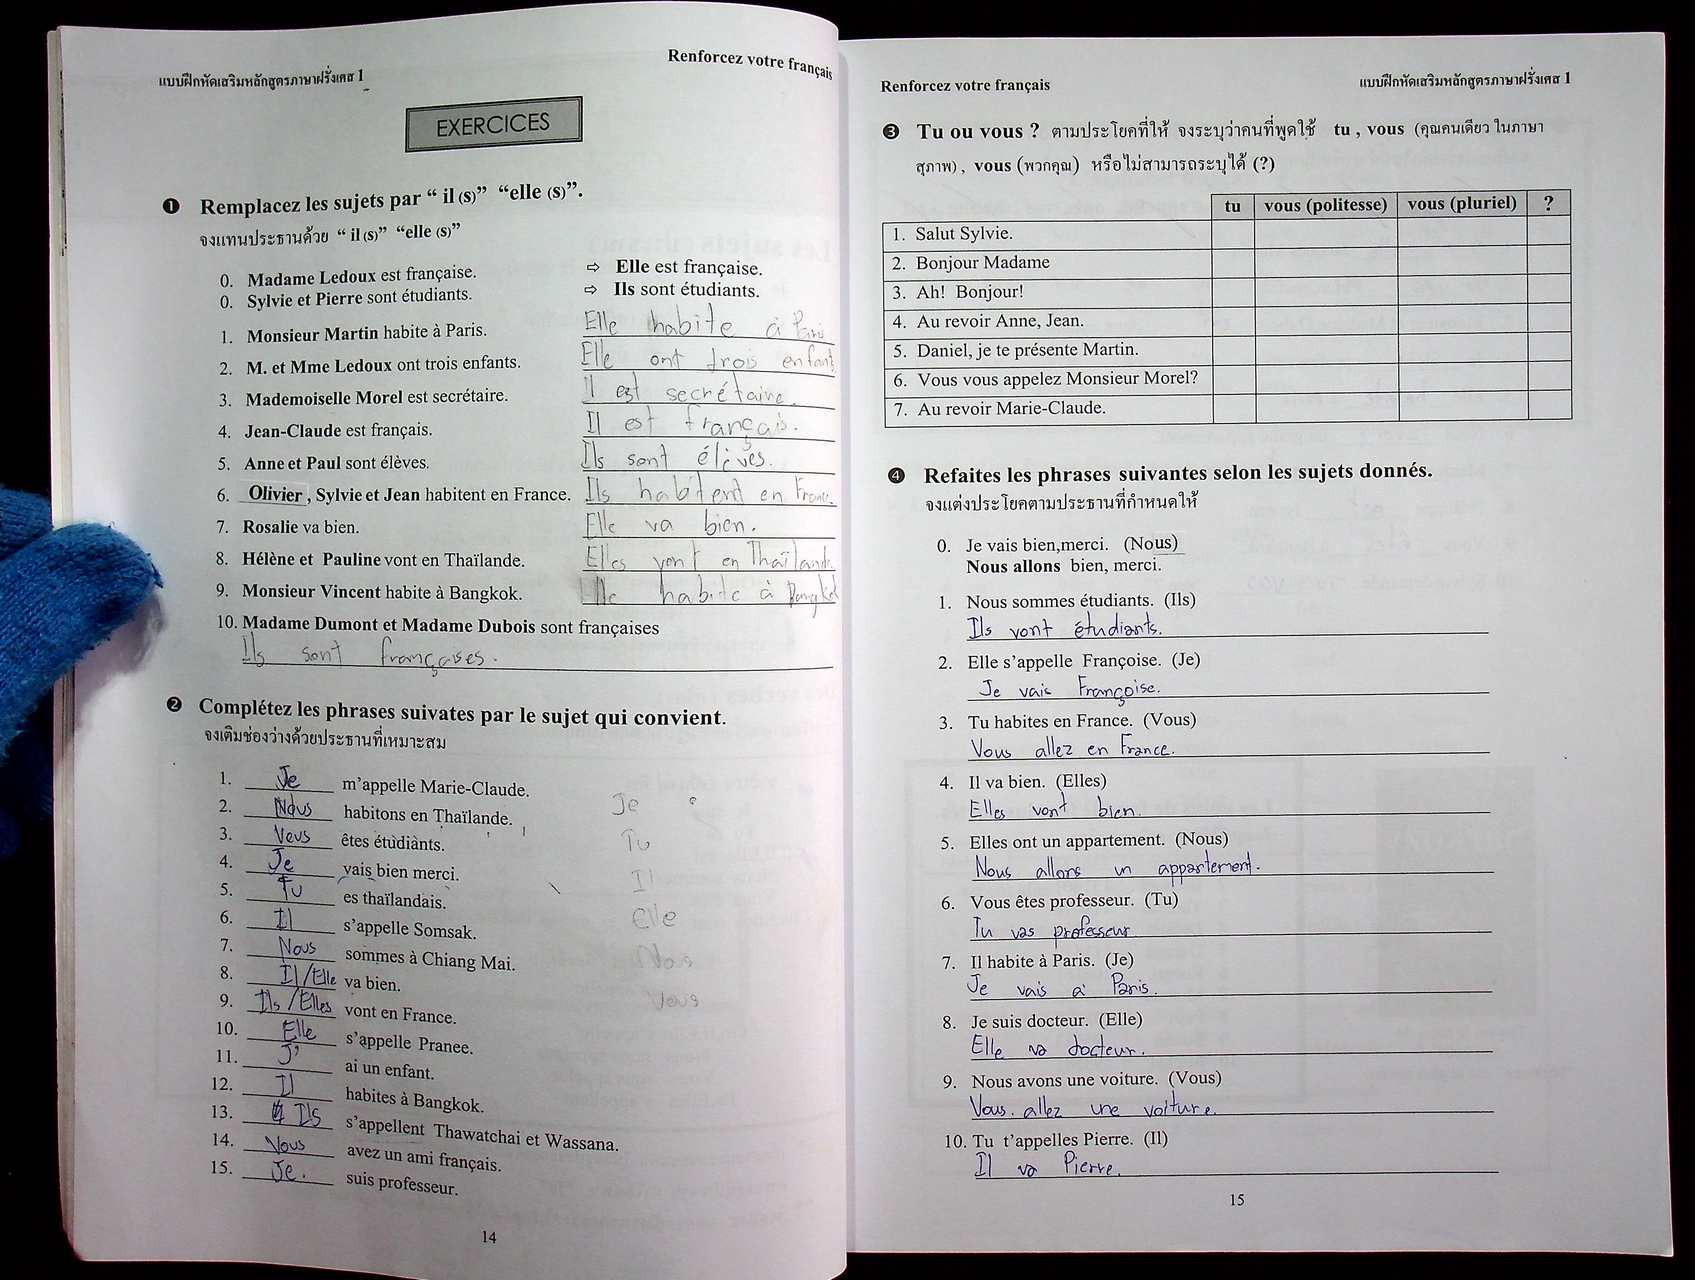 แบบฝึกหัดเสริมหลักสูตรภาษาฝรั่งเศส 1
Renforcez votre français
EXERCICES
❶ Remplacez les sujets par “ il (s)” “elle (s)”.
จงแทนประธานด้วย “ il (s)” “elle (s)”
0. Madame Ledoux est française. ⇨ Elle est française.
0. Sylvie et Pierre sont étudiants. ⇨ Ils sont étudiants.
1. Monsieur Martin habite à Paris. Elle habite à Paris
2. M. et Mme Ledoux ont trois enfants. Elle ont trois enfant
3. Mademoiselle Morel est secrétaire. Il est secrétaire.
4. Jean-Claude est français. Il est français.
5. Anne et Paul sont élèves. Ils sont élèves.
6. Olivier , Sylvie et Jean habitent en France. Ils habitent en France
7. Rosalie va bien. Elle va bien.
8. Hélène et Pauline vont en Thaïlande. Elles vont en Thaïlande
9. Monsieur Vincent habite à Bangkok. Elle habite à Bangkok
10. Madame Dumont et Madame Dubois sont françaises
Ils sont françaises.
❷ Complétez les phrases suivates par le sujet qui convient.
จงเติมช่องว่างด้วยประธานที่เหมาะสม
1. Je m’appelle Marie-Claude.
2. Nous habitons en Thaïlande. Je
3. Vous êtes étudiants. Tu
4. Je vais bien merci. Il
5. Tu es thaïlandais.
6. Il s’appelle Somsak. Elle
7. Nous sommes à Chiang Mai. Nous
8. Il/Elle va bien. Vous
9. Ils/Elles vont en France.
10. Elle s’appelle Pranee.
11. J’ ai un enfant.
12. Il habites à Bangkok.
13. Ils s’appellent Thawatchai et Wassana.
14. Vous avez un ami français.
15. Je. suis professeur.
14
Renforcez votre français
แบบฝึกหัดเสริมหลักสูตรภาษาฝรั่งเศส 1
❸ Tu ou vous ? ตามประโยคที่ให้ จงระบุว่าคนที่พูดใช้ tu , vous (คุณคนเดียว ในภาษา
สุภาพ) , vous (พวกคุณ) หรือไม่สามารถระบุได้ (?)
tu vous (politesse) vous (pluriel) ?
1. Salut Sylvie.
2. Bonjour Madame
3. Ah! Bonjour!
4. Au revoir Anne, Jean.
5. Daniel, je te présente Martin.
6. Vous vous appelez Monsieur Morel?
7. Au revoir Marie-Claude.
❹ Refaites les phrases suivantes selon les sujets donnés.
จงแต่งประโยคตามประธานที่กำหนดให้
0. Je vais bien,merci. (Nous)
Nous allons bien, merci.
1. Nous sommes étudiants. (Ils)
Ils vont étudiants.
2. Elle s’appelle Françoise. (Je)
Je vais Françoise.
3. Tu habites en France. (Vous)
Vous allez en France.
4. Il va bien. (Elles)
Elles vont bien.
5. Elles ont un appartement. (Nous)
Nous allons un appartement.
6. Vous êtes professeur. (Tu)
Tu vas professeur
7. Il habite à Paris. (Je)
Je vais à Paris.
8. Je suis docteur. (Elle)
Elle va docteur.
9. Nous avons une voiture. (Vous)
Vous. allez une voiture.
10. Tu t’appelles Pierre. (Il)
Il va Pierre.
15